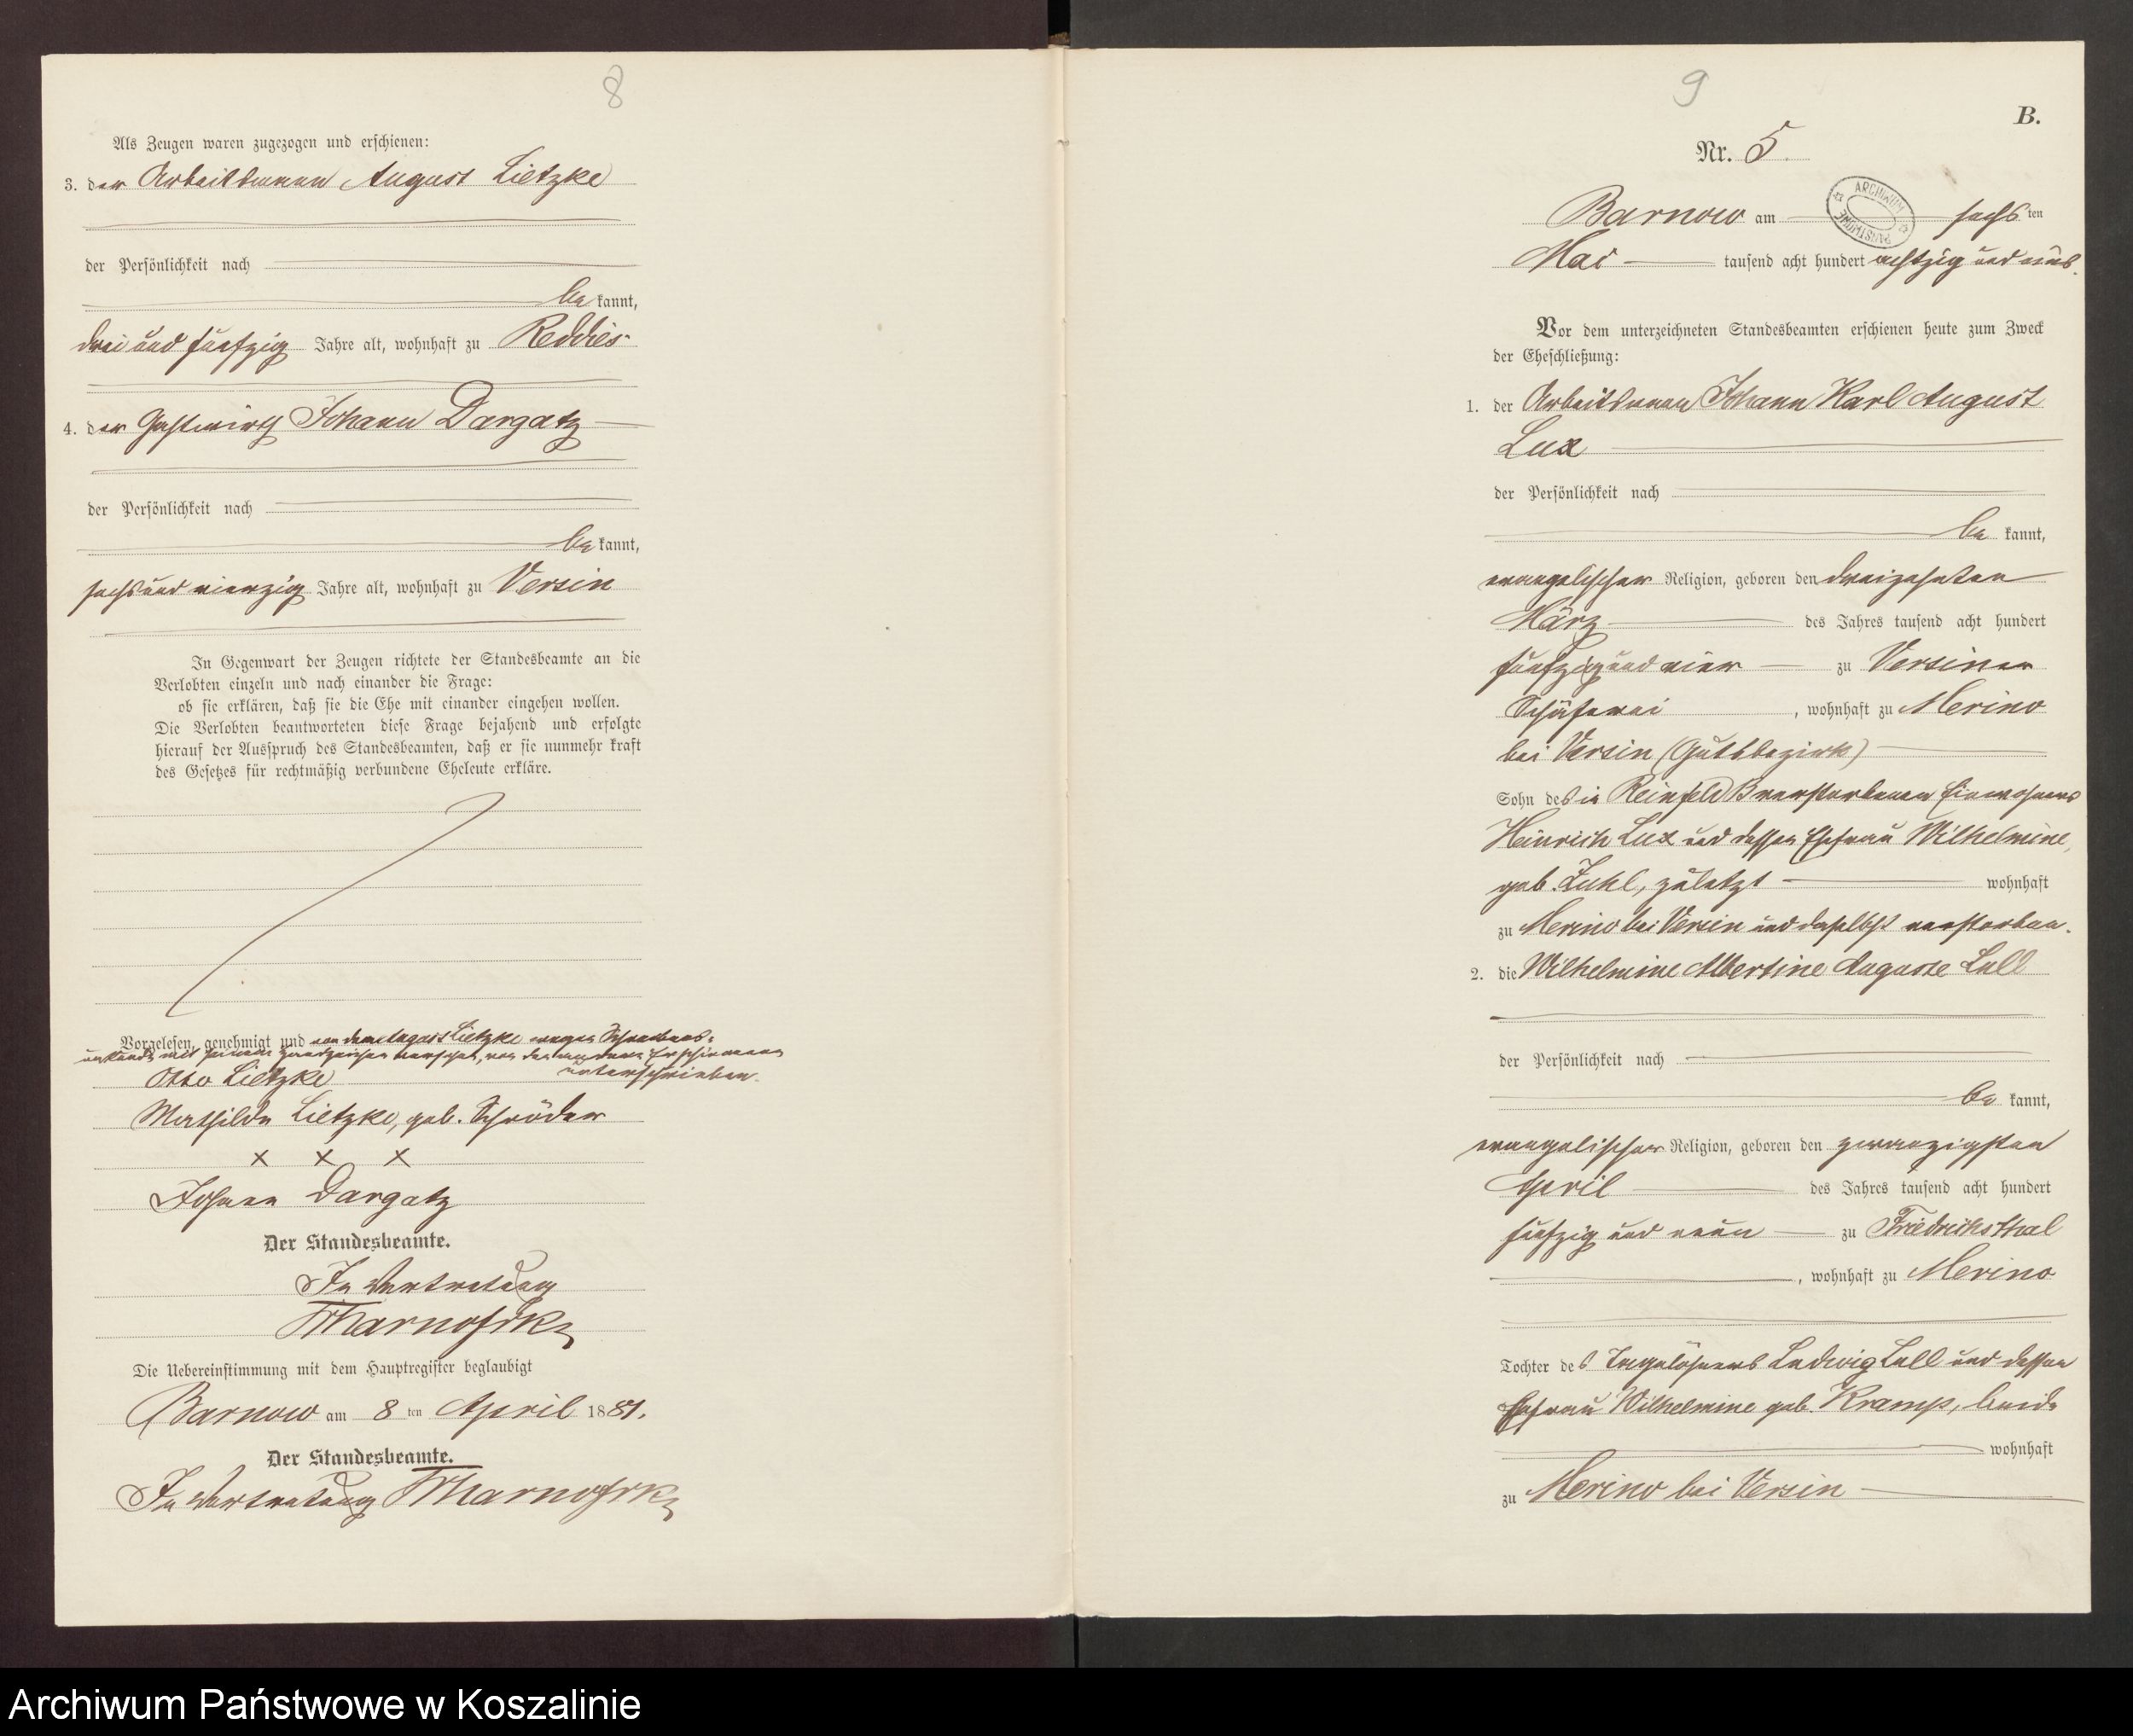 8
Als Zeugen waren zugezogen und erschienen:
3. der Arbeitsmann August Lietzke
der Persönlichkeit nach
be kannt,
drei und fünfzig Jahre alt, wohnhaft zu Reddies
4. der Gastwirth Johann Dargatz
der Persönlichkeit nach
be kannt,
sechs und vierzig Jahre alt, wohnhaft zu Versin
In Gegenwart der Zeugen richtete der Standesbeamte an die
Verlobten einzeln und nach einander die Frage:
ob sie erklären, daß sie die Ehe mit einander eingehen wollen.
Die Verlobten beantworteten diese Frage bejahend und erfolgte
hierauf der Ausspruch des Standesbeamten, daß er sie nunmehr kraft
des Gesetzes für rechtmäßig verbundene Eheleute erkläre.
Vorgelesen, genehmigt und von dem August Lietzke wegen Schreibens-
unkunde mit seinem Handzeichen versehen, von den anderen Erschienenen
unterschrieben.
Otto Lietzke
Mathilde Lietzke, geb. Schröder
x x x
Johann Dargatz
Der Standesbeamte.
In Vertretung
Der Uebereinstimmung mit dem Hauptregister beglaubigt
Barnow am 8 ten April 1881.
Der Standesbeamte.
In Vertretung
9
B.
Nr. 5.
ARCHIWUM PAŃSTWOWE
Barnow am sechs ten
Mai tausend acht hundert achtzig und eins.
Vor dem unterzeichneten Standesbeamten erschienen heute zum Zweck
der Eheschließung:
1. der Arbeitsmann Johann Karl August
Lux
der Persönlichkeit nach
be kannt,
evangelischer Religion, geboren den dreizehnten
März des Jahres tausend acht hundert
fünfzig und vier zu Versiner
Schäferei, wohnhaft zu Merino
bei Versin (Gutsbezirk)
Sohn des in Reinfeld B verstorbenen Einwohners
Heinrich Lux und dessen Ehefrau Wilhelmine,
geb. Zuhl, zuletzt wohnhaft
zu Merino bei Versin und daselbst verstorben.
2. die Wilhelmine Albertine Auguste Lull
der Persönlichkeit nach
be kannt,
evangelischer Religion, geboren den zwanzigsten
April des Jahres tausend acht hundert
fünfzig und neun zu Friedrichsthal
, wohnhaft zu Merino
Tochter des Tagelöhners Ludwig Lull und dessen
Ehefrau Wilhelmine geb. Kramp, beide
wohnhaft
zu Merino bei Versin
Archiwum Państwowe w Koszalinie